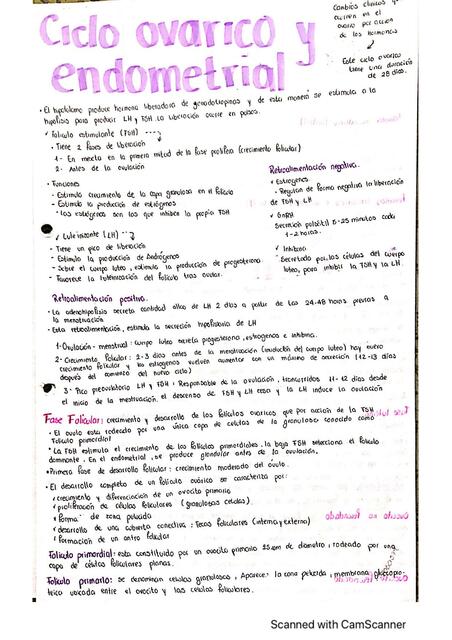 Ciclo ovarico y
endometrial
Cambios cíclicos q
ocurren en el
ovario por acción
de las hormonas
Este ciclo ovarico
tiene una duración
de 28 días.
• El hipotálamo produce hormona liberadora de gonadotropinas y de esta manera se estimula a la
hipófisis para producir LH y FSH. La liberación ocurre en pulsos.
✓ Folículo estimulante (FSH)
• Tiene 2 Fases de liberación
1- En meseta en la primera mitad de la fase prolifera (crecimiento folicular)
2- Antes de la ovulación
• Funciones
- Estimula crecimiento de la capa granulosa en el folículo
- Estimula la producción de estrógenos
* los estrógenos son los que inhiben la propia FSH
✓ Luteinizante (LH)
- Tiene un pico de liberación
- Estimula la producción de Andrógenos
- Sobre el cuerpo luteo, estimula la producción de progesterona
- Favorece la luteinización del folículo tras ovular.
Retroalimentación negativa.
✓ Estrogenos
• Regulan de forma negativa la liberación
de FSH y LH
✓ GnRH
Secreción pulsátil 5-25 minutos cada
1-2 horas.
✓ Inhibina
Secretado por las células del cuerpo
luteo, para inhibir la FSH y la LH.
Retroalimentación positiva.
• La adenohipofisis secreta cantidad altas de LH 2 días a partir de las 24-48 horas previas a
la menstruación
• Esta retroalimentación, estimula la secreción hipofisiaria de LH
1- Ovulación - menstrual: cuerpo luteo secreta progesterona, estrogenos e inhibina.
2- Crecimiento Folicular: 2-3 días antes de la menstruación (involución del cuerpo luteo) hay nuevo
crecimiento folicular y los estrogenos vuelven aumentar con un máximo de secreción (12-13 días
después del comienzo del nuevo ciclo)
3- Pico preovulatorio LH y FSH: Responsable de la ovulación, transcurridos 11-12 días desde
el inicio de la menstruación, el descenso de FSH y LH cesa y la LH induce la ovulación
Fase Folicular: crecimiento y desarrollo de los folículos ovaricos que por acción de la FSH
• El ovulo esta rodeado por una única capa de células de la granulosa conocido como
Folículo primordial
* La FSH estimula el crecimiento de los folículos primordiales, la baja FSH selecciona el folículo
dominante. En el endometrial, se produce glandular antes de la ovulación.
• Primera fase de desarrollo folicular: crecimiento moderado del óvulo.
• El desarrollo completo de un folículo ovárico se caracteriza por:
✓ crecimiento y diferenciación de un ovocito primario
✓ proliferación de células foliculares (granulosas celulas)
✓ Forma de zona pelucida
✓ desarrollo de una cubierta conectiva: Tecas foliculares (interna y externo)
✓ Formación de un antro folicular
Folículo primordial: esta constituido por un ovocito primario 25um de diametro, rodeado por una
capa de células foliculares planas.
Folículo primario: se denominan celulas granulosas, Aparece: la zona pelucida, membrana glucopro-
teica ubicada entre el ovocito y las células foliculares.
Scanned with CamScanner